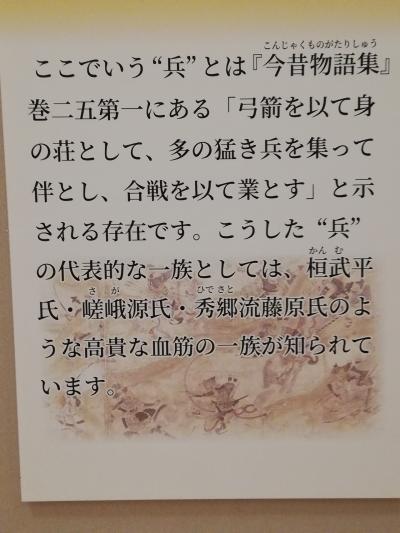 こんじゃくものがたりしゅう
ここでいう“兵”とは『今昔物語集』
巻二五第一にある「弓箭を以て身
の荘として、多の猛き兵を集って
伴とし、合戦を以て業とす」と示
される存在です。こうした“兵”
かんむ
の代表的な一族としては、桓武平
さが ひでさと
氏・嵯峨源氏・秀郷流藤原氏のよ
うな高貴な血筋の一族が知られて
います。